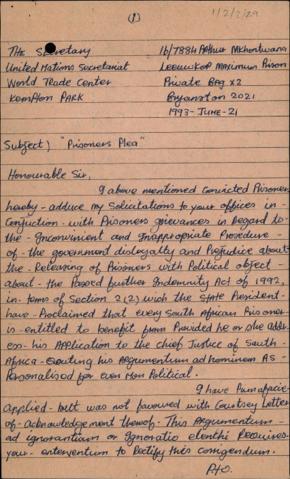 (1)
1/2/2/29
The Secretary
16/7884 Arthur Mkhontwana
United Nations Secretariat
Leeuwkop Maximum Prison
World Trade Center
Private Bag x2
Kempton PARK
Bryanston 2021
1993-JUNE-21
Subject) "Prisoners Plea"
Honourable Sir,
I above mentioned Convicted Prisoner
hereby - adduce my Solicitations to your offices in -
Conjuction - with Prisoners grievances in Regard to
the - Inconvinient and Inappropriate Procedure -
of - the government disloyalty and Prejudice about
the - Releasing of Prisoners with Political object -
about - the Passed further Indemnity Act of 1992,
in - terms of Section 2(2) wich the State President -
have - Proclaimed that every South African Prisoner
is - entitled to benefit from Provided he or she addr-
ess - his Application to the Chief Justice of South -
Africa - his Argumentum ad hominem AS -
Personalised for even Non Political.
I have
applied - but was not favoured with Courtsey Letter
of - acknowledgement thereof - This Argumentum -
ad ignorantium or Ignoratio elenchi Requires
your - intervention to Rectify this
P.T.O.